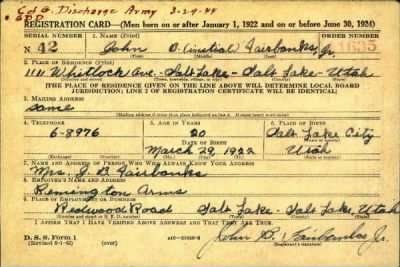 Col G. Discharge Army 3-29-44
REGISTRATION CARD—(Men born on or after January 1, 1922 and on or before June 30, 1924)
SERIAL NUMBER 1. NAME (Print) ORDER NUMBER
N 42 John B (initial) Fairbanks, Jr. 11635
2. PLACE OF RESIDENCE (Print)
1111 Whitlock Ave. Salt Lake - Salt Lake - Utah
[THE PLACE OF RESIDENCE GIVEN ON THE LINE ABOVE WILL DETERMINE LOCAL BOARD
JURISDICTION; LINE 2 OF REGISTRATION CERTIFICATE WILL BE IDENTICAL]
3. MAILING ADDRESS
Same
4. TELEPHONE 5. AGE IN YEARS 6. PLACE OF BIRTH
6-8976 20 Salt Lake City
DATE OF BIRTH
March 29, 1922 Utah
7. NAME AND ADDRESS OF PERSON WHO WILL ALWAYS KNOW YOUR ADDRESS
Mrs. J. B. Fairbanks
8. EMPLOYER'S NAME AND ADDRESS
Remington Arms
9. PLACE OF EMPLOYMENT OR BUSINESS
Redwood Road Salt Lake - Salt Lake Utah
I AFFIRM THAT I HAVE VERIFIED ABOVE ANSWERS AND THAT THEY ARE TRUE.
D. S. S. Form 1
(Revised 6-1-42) (over)
John B. Fairbanks Jr.
(Registrant's signature)